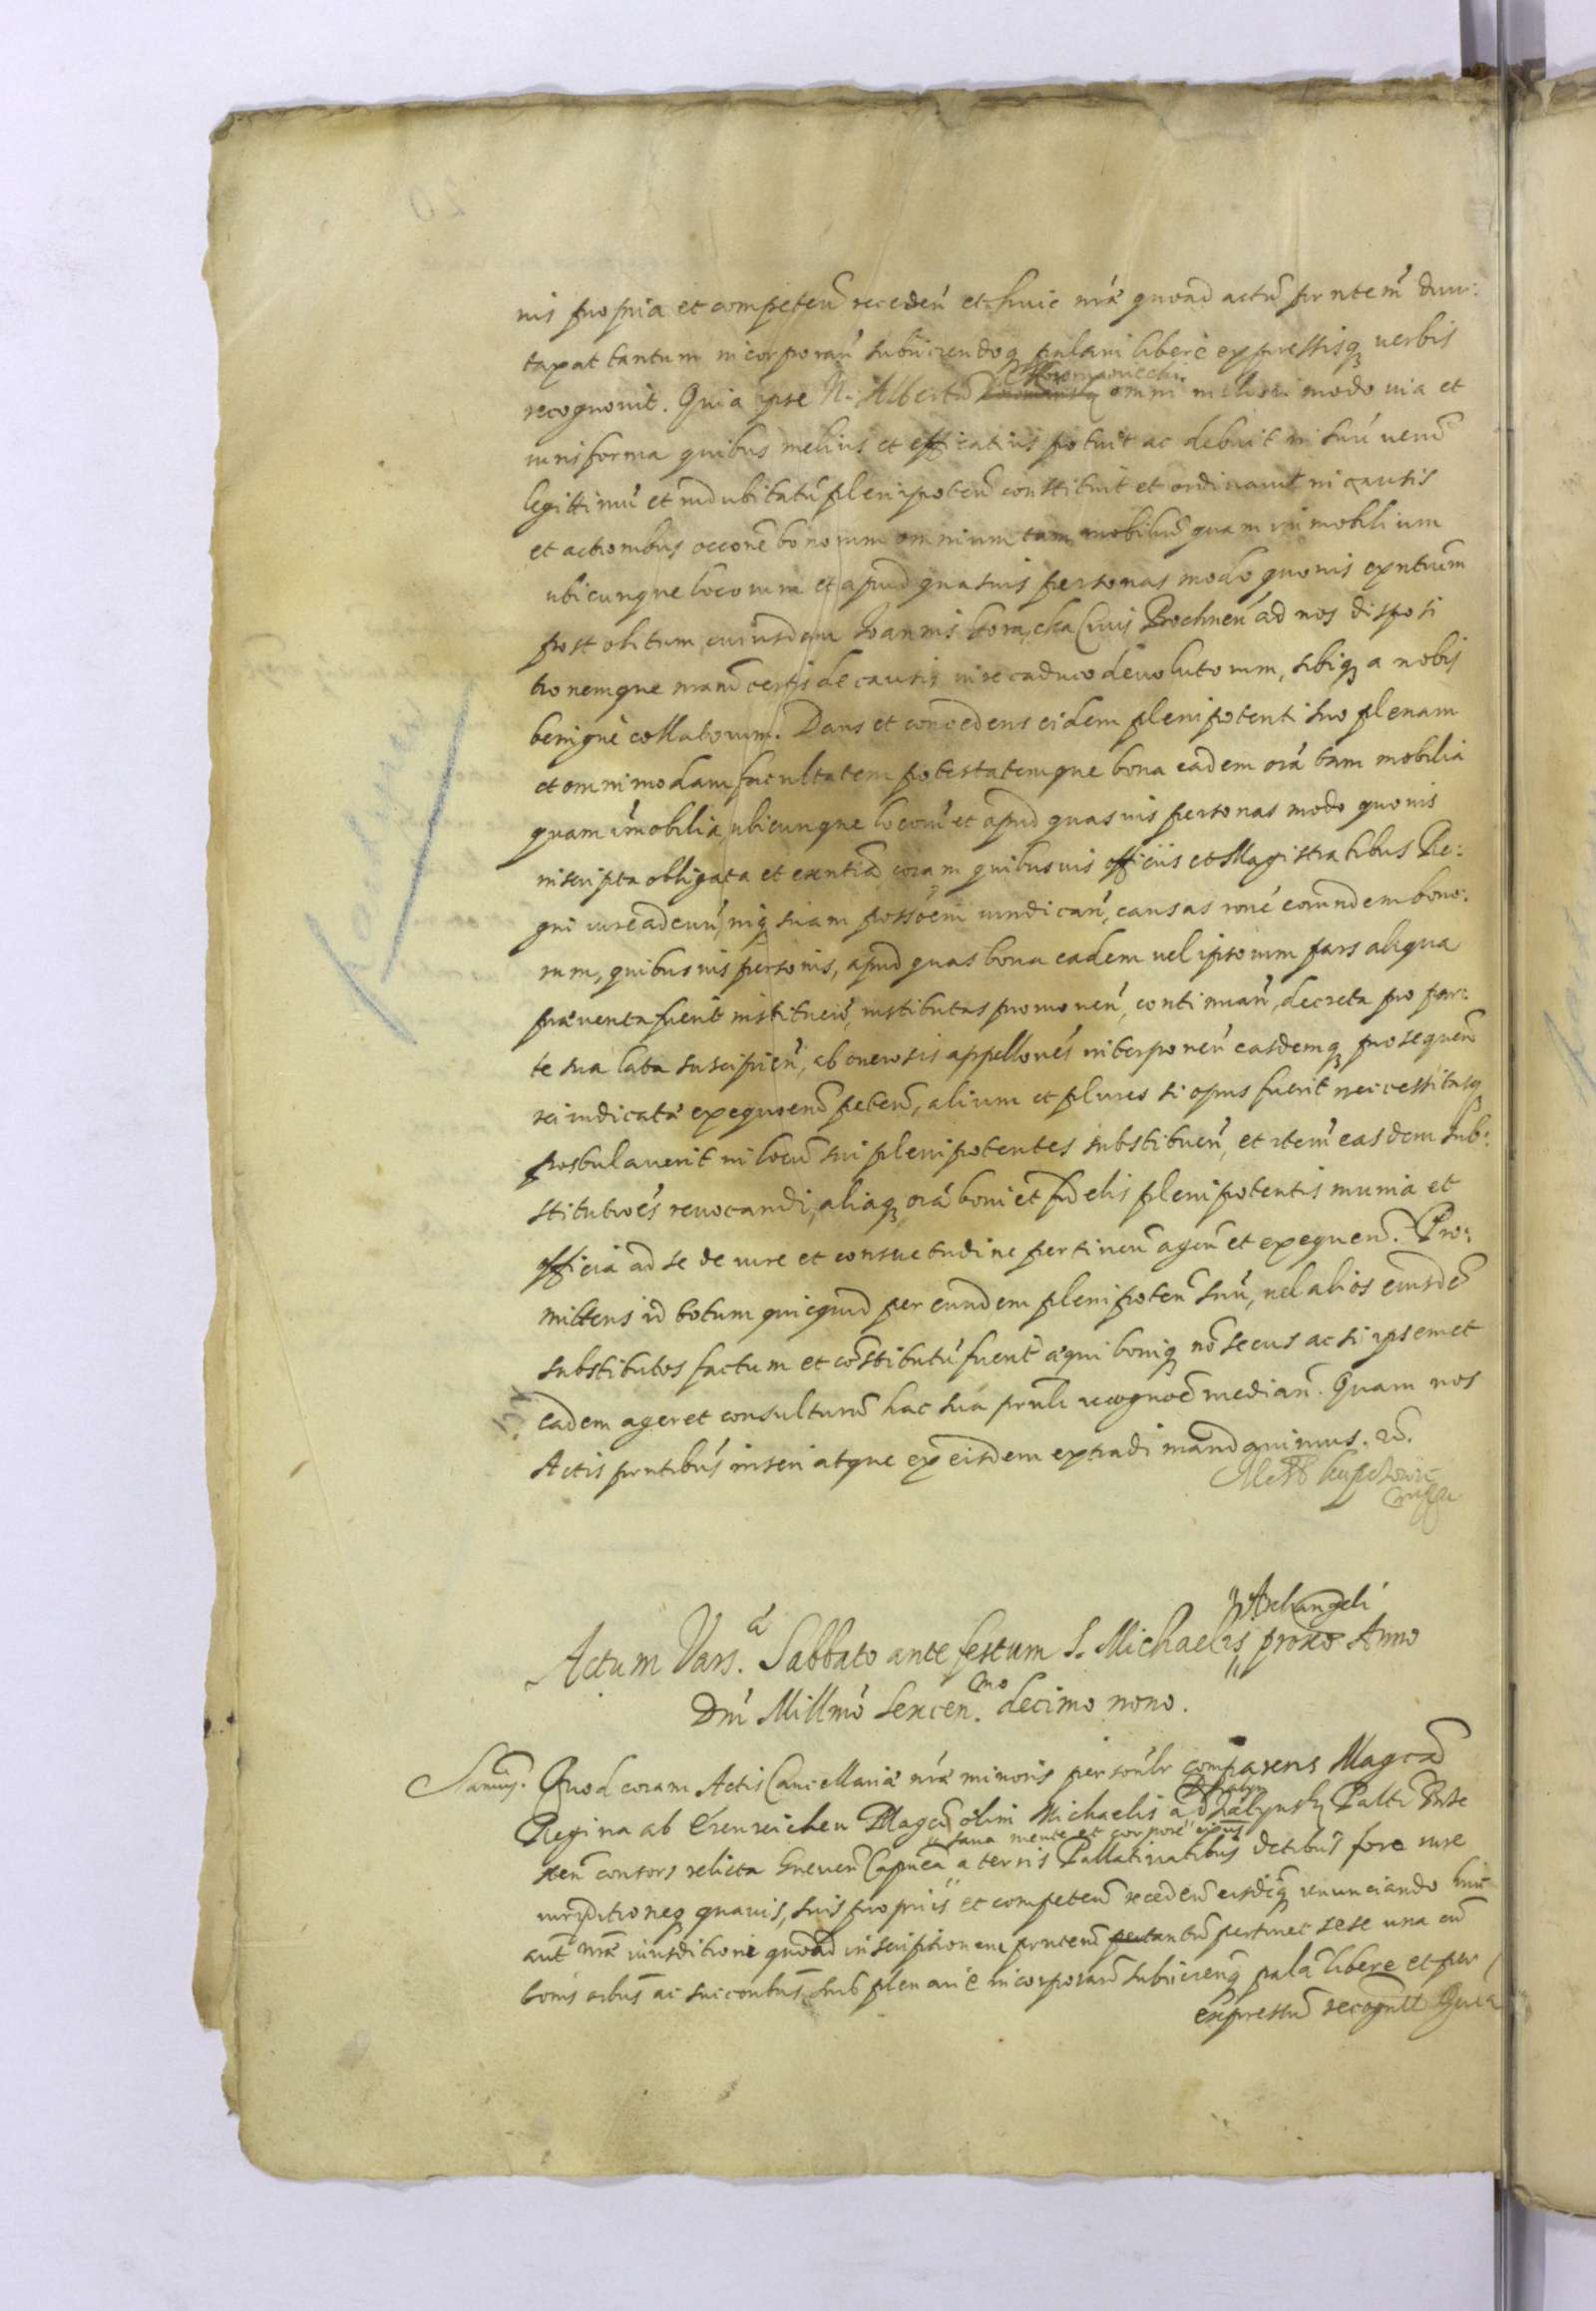 nis propria et competeñ recedeñ et huic nrae quoad actũ prntem̃ dun:
taxat tantum incorporañ subiiciendoq palam liberè expressisq verbis
recognovit. Quia ipse N. Albertũ omni meliori modo via et
iuris forma quibus melius et efficatius potuit ac debuit in suũ verũ
legittimũ et indubitatũ plenipoteñ constituit et ordinavit in causis
et actionibus occõne bonorum omnium tam mobiliũ quam immobilium
ubicunque locorum et apud quasuis personas modo quovis exntium
post obitum eiusdem Joannis Civis Prochneñ ad nos disposi
tionemque nram̃ certis de causis iure caduco devolutorum, sibiq a nobis
benignè collatorum. Dans et concedens eidem plenipotenti suo plenam
et omnimodam facultatem potestatemque bona eadem oĩa tam mobilia
quam im̃obilia, ubicunque locorũ et apud quasvis personas modo quovis
inscripta obligata et exntia coram quibusvis officiis et Magistratibus Re:
gni iure adeuñ, inq suam possõem vindicañ, causas rõne eorundem bono:
rum, quibusvis personis, apud quas bona eadem vel ipsorum pars aliqua
praeventa fuerit instituendi, institutas promoveñ, continuañ, decreta pro par:
te sua lata suscipieñ, ab onerosis appellões interponeñ easdemq prosequeñ
rei iudicatae exequuenõ peteñ, alium et plures si opus fuerit neccessitasq
postulaverit in locũ sui plenipotentes substitueñ, et item̃ easdem sub:
stitutiões revocandi, aliaq oĩa boni et fidelis plenipotentis munia et
officia ad se de iure et consuetudine pertineñ ageñ et exequeñ. Pro:
mittens id totum quicquid per eundem plenipoteñ suũ, vel alios eiusdẽ
substitutos factum et cõstitutũ fuerit aequi boniq nõ secus ac si ipsemet
eadem ageret consulturũ hac sua prnti recognoẽ mediañ. Quam nos
Actis prntibus inseri atque ex eisdem extradi mand quimus.
Archangeli
Actum Vars.ae Sabbato ante festum S. Michaelis proxo Anno
Dnĩ Millmõ Sexcen.mo decimo nono.
Quod coram Actis Cancellariae nrae minoris personlr comparens Magcã
Regina ab Magci olim Michaelis a Działynsky
sana mente et corpore
consors relicta a terris Pallatinatibus dctibus fore iure
iurisditioneq quavis, suis propriis et competeñ recedeñ eisdẽq renunciando huic
aut nrae iurisditioni quoad inscriptionem prntem̃ tantũ pertinet sese una cũ
bonis oibus ac suis sub plenarie incorporañ subiicienq palã liberè et per
expressũ recognit Quia